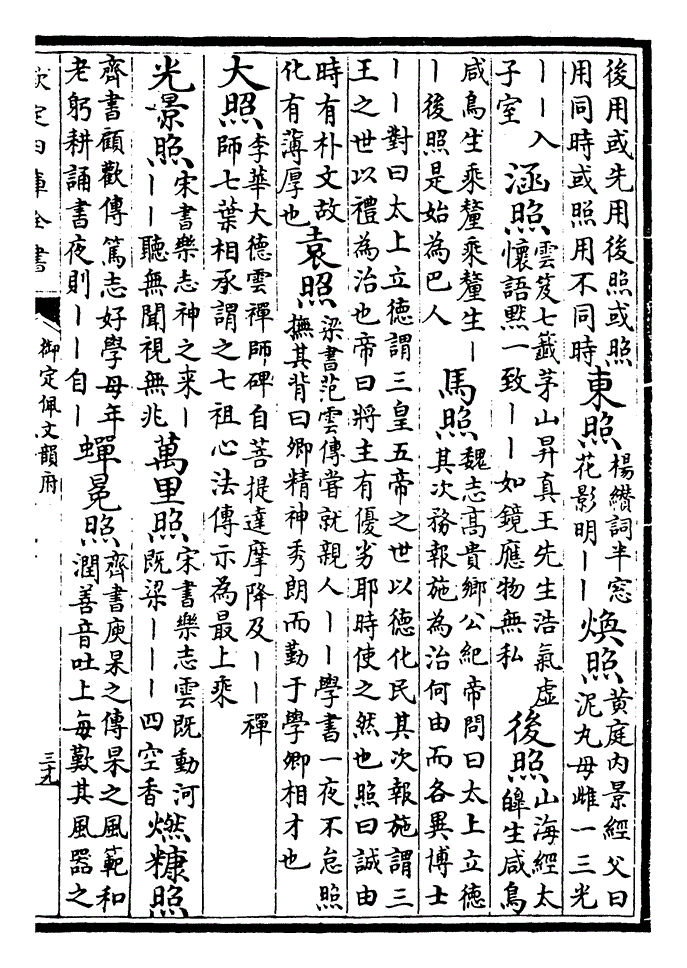 後用或先用後照或照
用同時或照用不同時
東照
楊纉詞半窓
花影明丨丨
煥照
黄庭内景經父曰
泥丸母雌一三光
丨丨入
子室
涵照
雲笈七籖茅山昇真王先生浩氣虛
懷語黙一致丨丨如鏡應物無私
後照
山海經太
皥生咸鳥
咸鳥生乘釐乘釐生丨
丨後照是始為巴人
馬照
魏志高貴鄉公紀帝問曰太上立德
其次務報施為治何由而各異博士
丨丨對曰太上立德謂三皇五帝之世以德化民其次報施謂三
王之世以禮為治也帝曰將主有優劣耶時使之然也照曰誠由
時有朴文故
化有薄厚也
袁照
梁書范雲傳嘗就親人丨丨學書一夜不怠照
撫其背曰卿精神秀朗而勤于學卿相才也
大照
李華大德雲禪師碑自菩提達摩降及丨丨禪
師七葉相承謂之七祖心法傳示為最上乘
光景照
宋書樂志神之来丨
丨丨聽無聞視無兆
萬里照
宋書樂志雲既動河
既梁丨丨丨四空香
燃糠照
齊書顧歡傳篤志好學母年
老躬耕誦書夜則丨丨自丨
蟬冕照
齊書庾杲之傳杲之風範和
潤善音吐上每歎其風器之
欽定四庫全書
御定佩文韻府
三十九